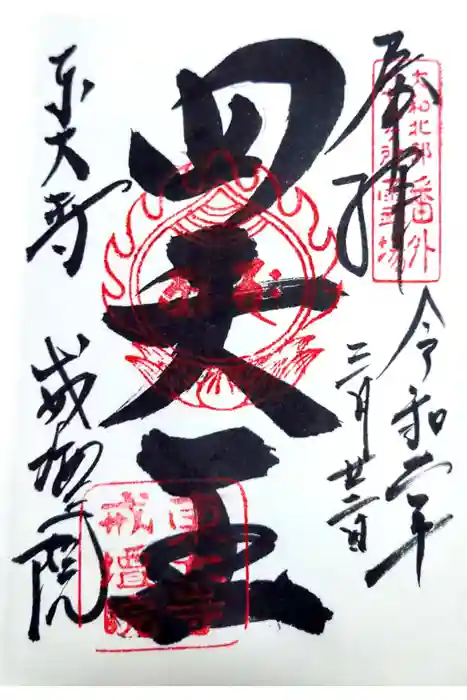 奉拝
大和北部
番外
霊場
令和二年
三月廿二日
四天王
東大寺
戒壇院
東大寺
戒壇院